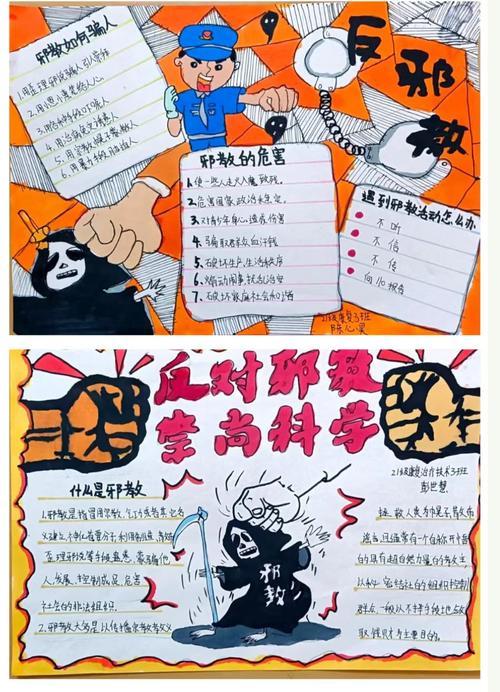 反邪教
邪教如何骗人
1.用歪理邪说骗人引入高徒
2.用恩小惠笼络人心
6.用暴力手段胁迫人
邪教的危害
1.使一些人走火入魔致残
2.危害国家政治安定
3.对青少年身心造成伤害
4.骗取群众血汗钱
5.破坏生产,生活秩序
6.煽动闹事,扰乱治安
7.破坏家庭社会和谐
遇到邪教活动怎么办
不听
不信
不传
向110报告
21级康复3班
反对邪教
崇尚科学
什么是邪教
1.邪教是指冒用宗教、气功或者其它名
义建立,神化首要分子,利用制造,散布
歪理邪说等手段蛊惑,蒙骗他
人,发展、控制成员,危害
社会的非法组织.
2.邪教大多是以传播宗教教义
邪教
21级康复治疗技术3班
彭世慧
拯救人类为幌子,散布
谣言,且通常有一个自称开悟
的具有超自然力量的教主,
以秘密结社的组织控制
群众,一般以不择手段地敛
取钱财为主要目的.